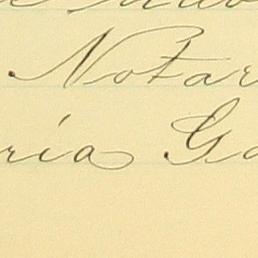 Notar
ría Ga